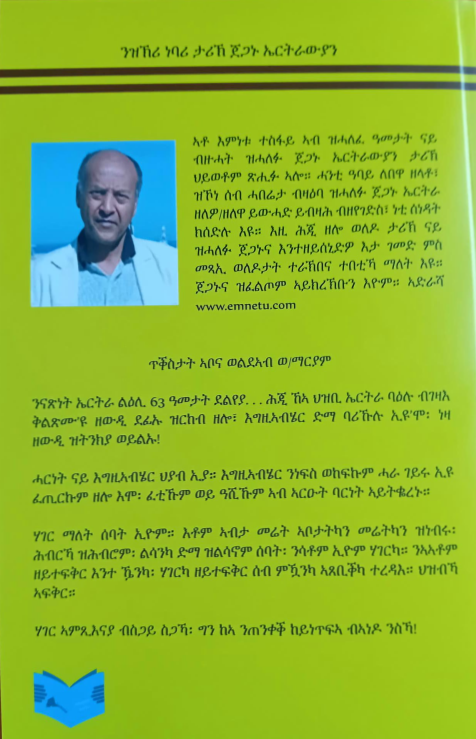 ንዝኽሪ ነባሪ ታሪኽ ጀጋኑ ኤርትራውያን
ኣቶ እምነቱ ተስፋይ ኣብ ዝሓለፈ ዓመታት ናይ
ብዙሓት ዝሓለፉ ጀጋኑ ኤርትራውያን ታሪኽ
ህይወቶም ጽሒፉ ኣሎ። ሓንቲ ዓባይ ለበዋ ዘላቶ፣
ዝኾነ ሰብ ሓበሬታ ብዛዕባ ዝሓለፉ ጀጋኑ ኤርትራ
ዘለዎ/ዘለዋ ይውሓድ ይብዛሕ ብዘየገድስ፣ ነቲ ሰነዳት
ከሰድሉ እዩ። እዚ ሕጂ ዘሎ ወለዶ ታሪኽ ናይ
ዝሓለፉ ጀጋኑና እንተዘይሰኒድዎ እታ ገመድ ምስ
መጻኢ ወለዶታት ተራኽበና ተበቲኻ ማለት እዩ።
ጀጋኑና ዝፈልጦም ኣይክረኽቡን እዮም። ኣድራሻ
www.emnetu.com
ጥቕስታት ኣቦና ወልደኣብ ወ/ማርያም
ንናጽነት ኤርትራ ልዕሊ 63 ዓመታት ደልየያ. . . ሕጂ ኸኣ ህዝቢ ኤርትራ ባዕሉ ብገዛእ
ቅልጽሙ'ዩ ዘውዲ ደፊኡ ዝርከብ ዘሎ፣ እግዚኣብሄር ድማ ባሪኹሉ ኢዩ'ሞ፡ ነዛ
ዘውዲ ዝትንክያ ወይልኡ!
ሓርነት ናይ እግዚኣብሄር ህያብ ኢያ። እግዚኣብሄር ንነፍስ ወከፍኩም ሓራ ገይሩ ኢዩ
ፈጢርኩም ዘሎ እሞ፡ ፈቲኹም ወይ ዓሺኹም ኣብ ኣርዑት ባርነት ኣይትቈረኑ።
ሃገር ማለት ሰባት ኢዮም። እቶም ኣብታ መሬት ኣቦታትካን መሬትካን ዝነብሩ፡
ሕብርኻ ዝሕብሮም፡ ልሳንካ ድማ ዝልሳኖም ሰባት፡ ንሳቶም ኢዮም ሃገርካ። ንኣኣቶም
ዘይተፍቅር እንተ ዄንካ፡ ሃገርካ ዘይተፍቅር ሰብ ምዃንካ ኣጸቢቕካ ተረዳእ። ህዝብኻ
ኣፍቅር።
ሃገር ኣምጺእናያ ብስጋይ ስጋኻ፡ ግን ከኣ ንጠንቀቕ ከይነጥፍኣ ብኣነዶ ንስኻ!